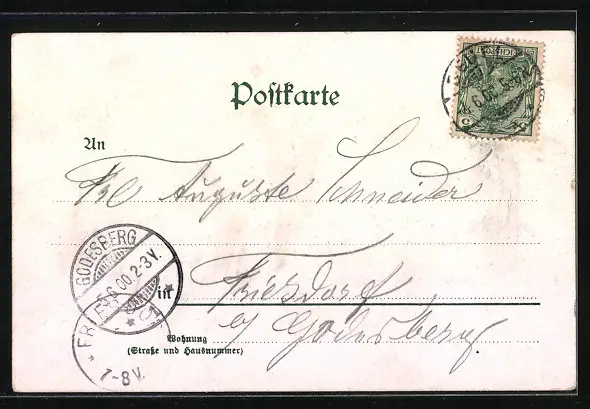 Postkarte
An
Frl Auguste Schneider
in Friesdorf
b/ Godesberg
Wohnung
(Straße und Hausnummer)
GODESBERG
6.00.2-3V.
FRIES
7-8V.
5
5